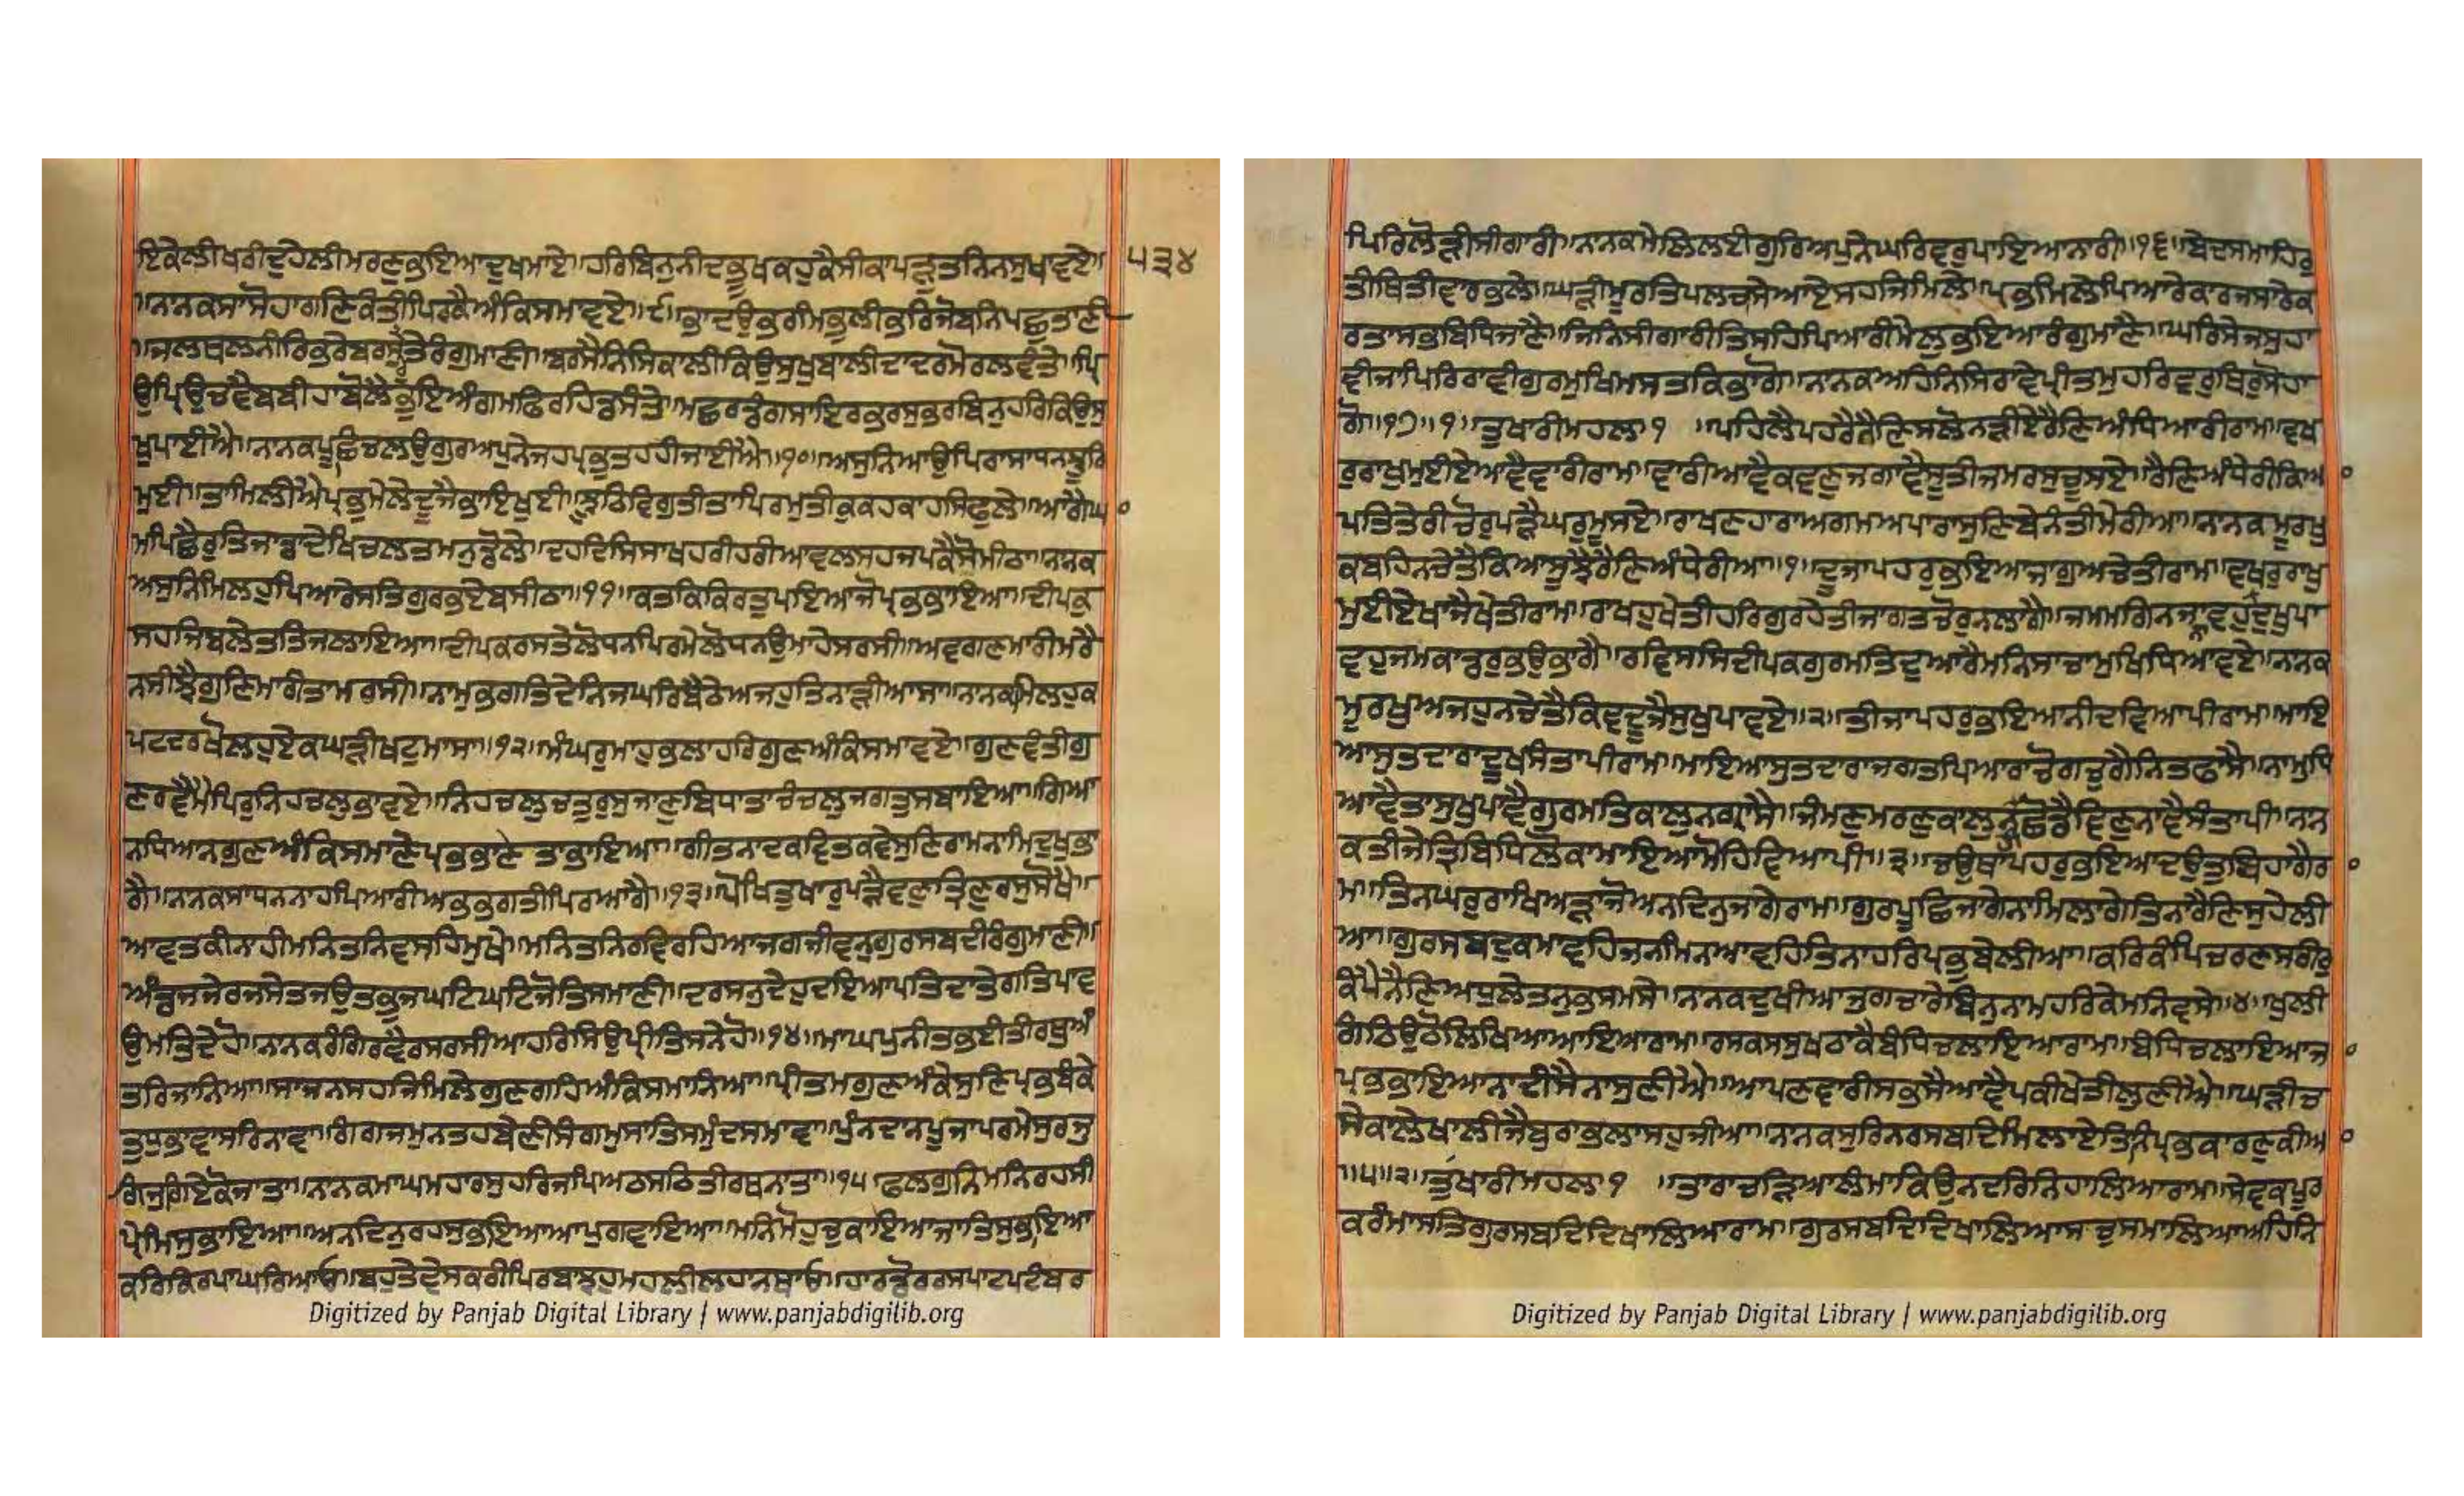 ਇਕੇਲੀਖਰੀਦੁਹੇਲੀਮਰਣੁਭਇਆਦੁਖਮਾਏ॥ਹਰਿਬਿਨੁਨੀਦਭੂਖਕਹੁਕੈਸੀਕਾਪੜੁਤਨਿਨਸੁਖਾਵਏ॥ ੫੩੪
॥ਨਾਨਕਸਾਸੋਹਾਗਣਿਕੰਤੀਪਿਰਕੈਅੰਕਿਸਮਾਵਏ॥੯॥ਭਾਦਉਭਰਮਿਭੁਲੀਭਰਿਜੋਬਨਿਪਛੁਤਾਣੀ
॥ਜਲਥਲਨੀਰਿਭਰੇਬਰਸਰੁਤੇਰੰਗੁਮਾਣੀ॥ਬਰਸੈਨਿਸਿਕਾਲੀਕਿਉਸੁਖੁਬਾਲੀਦਾਦਰਮੋਰਲਵੰਤੇ॥ਪ੍ਰਿ
ਉਪ੍ਰਿਉਚਵੈਬਬੀਹਾਬੋਲੇਭੁਇਅੰਗਮਫਿਰਹਿਡਸੰਤੇ॥ਮਛਰਡੰਗਸਾਇਰਭਰਸੁਭਰਬਿਨੁਹਰਿਕਿਉਸੁ
ਖੁਪਾਈਐ॥ਨਾਨਕਪੂਛਿਚਲਉਗੁਰਅਪੁਨੇਜਹਪ੍ਰਭੁਤਹਹੀਜਾਈਐ॥੧੦॥ਅਸੁਨਿਆਉਪਿਰਾਸਾਧਨਝੂਰਿ
ਮੁਈ॥ਤਾਮਿਲੀਐਪ੍ਰਭੁਮੇਲੇਦੂਜੈਭਾਇਖੁਈ॥ਝੂਠਿਵਿਗੁਤੀਤਾਪਿਰਮੁਤੀਕੁਕਹਕਾਹਸਿਫੁਲੇ॥ਆਗੈਘਾ
ਮਪਿਛੈਰੁਤਿਜਾਡਾਦੇਖਿਚਲਤਮਨੁਡੋਲੇ॥ਦਹਦਿਸਿਸਾਖਹਰੀਹਰੀਆਵਲਸਹਜਪਕੈਸੋਮੀਠਾ॥ਨਾਨਕ
ਅਸੁਨਿਮਿਲਹੁਪਿਆਰੇਸਤਿਗੁਰਭਏਬਸੀਠਾ॥੧੧॥ਕਤਕਿਕਿਰਤੁਪਇਆਜੋਪ੍ਰਭਭਾਇਆ॥ਦੀਪਕੁ
ਸਹਜਿਬਲੇਤਤਿਜਲਾਇਆ॥ਦੀਪਕਰਸਤੇਲੋਧਨਪਿਰਮੇਲੋਧਨਉਮਾਹੇਸਰਸੀ॥ਅਵਗਣਮਾਰੀਮਰੈ
ਨਸੀਝੈਗੁਣਿਮਾਰੀਤਾਮਰਸੀ॥ਨਾਮੁਭਗਤਿਦੇਨਿਜਘਰਿਬੈਠੇਅਜਹੁਤਿਨਾੜੀਆਸਾ॥ਨਾਨਕਮਿਲਹੁਕ
ਪਟਦਰਖੋਲਹੁਏਕਘੜੀਖਟੁਮਾਸਾ॥੧੨॥ਮੰਘਰੁਮਾਹੁਭਲਾਹਰਿਗੁਣਅੰਕਿਸਮਾਵਏ॥ਗੁਣਵੰਤੀਗੁ
ਣਰਵੈਮੈਪਿਰੁਨਿਹਚਲੁਭਾਵਏ॥ਨਿਹਚਲੁਚਤੁਰੁਸੁਜਾਣੁਬਿਧਾਤਾਚੰਚਲੁਜਗਤੁਸਬਾਇਆ॥ਗਿਆ
ਨਧਿਆਨਗੁਣਅੰਕਿਸਮਾਣੇਪ੍ਰਭਭਾਣੇ ਤਾਭਾਇਆ॥ਗੀਤਨਾਦਕਵਿਤਕਵੇਸੁਣਿਰਾਮਨਾਮਿਦੁਖੁਭਾ
ਗੈ॥ਨਾਨਕਸਾਧਨਨਾਹਪਿਆਰੀਅਭਭਗਤੀਪਿਰਆਗੈ॥੧੩॥ਪੋਖਿਤੁਖਾਰੁਪੜੈਵਣੁਤ੍ਰਿਣੁਰਸੁਸੋਖੈ॥
ਆਵਤਕੀਨਾਹੀਮਨਿਤਨਿਵਸਹਿਮੁਖੇ॥ਮਨਿਤਨਿਰਵਿਰਹਿਆਜਗਜੀਵਨੁਗੁਰਸਬਦੀਰੰਗੁਮਾਣੀ॥
ਅੰਡਜਜੇਰਜਸੇਤਜਉਤਭੁਜਘਟਿਘਟਿਜੋਤਿਸਮਾਣੀ॥ਦਰਸਨੁਦੇਹੁਦਇਆਪਤਿਦਾਤੇਗਤਿਪਾਵ
ਉਮਤਿਦੇਹੋ॥ਨਾਨਕਰੰਗਿਰਵੈਰਸਰਸੀਆਹਰਿਸਿਉਪ੍ਰੀਤਿਸਨੇਹੋ॥੧੪॥ਮਾਘਪੁਨੀਤਭਈਤੀਰਥੁਅੰ
ਤਰਿਜਾਨਿਆ॥ਸਾਜਨਸਹਜਿਮਿਲੇਗੁਣਗਹਿਅੰਕਿਸਮਾਨਿਆ॥ਪ੍ਰੀਤਮਗੁਣਅੰਕੇਸੁਣਿਪ੍ਰਭਬੰਕੇ
ਤੁਧੁਭਾਵਾਸਰਿਨਾਵਾ॥ਗੰਗਜਮੁਨਤਹਬੇਣੀਸੰਗਮੁਸਾਤਸਮੁੰਦਸਮਾਵਾ॥ਪੁੰਨਦਾਨਪੂਜਾਪਰਮੇਸੁਰਜੁ
ਗਿਜੁਗਿਏਕੋਜਾਤਾ॥ਨਾਨਕਮਾਘਮਹਾਰਸੁਹਰਿਜਪਿਅਠਸਠਿਤੀਰਥਨਾਤਾ॥੧੫॥ਫਲਗੁਨਿਮਨਿਰਹਸੀ
ਪ੍ਰੇਮਿਸੁਭਾਇਆ॥ਅਨਦਿਨੁਰਹਸੁਭਇਆਆਪੁਗਵਾਇਆ॥ਮਨਿਮੋਹੁਚੁਕਾਇਆਜਾਤਿਸੁਭਾਇਆ
ਕਰਿਕਿਰਪਾਘਰਿਆਓ॥ਬਹੁਤੇਵੇਸਕਰੀਪਿਰਬਾਝਹੁਮਹਲੀਲਹਾਨਥਾਓ॥ਹਾਰਡੋਰਰਸਪਾਟਪਟੰਬਰ
ਪਿਰਿਲੋੜੀਸੀਗਾਰੀ॥ਨਾਨਕਮੇਲਿਲਈਗੁਰਿਅਪੁਨੈਘਰਿਵਰੁਪਾਇਆਨਾਰੀ॥੧੬॥ਬੇਦਸਮਾਹਰੁ
ਤੀਥਿਤੀਵਾਰਭਲੇ॥ਘੜੀਮੂਰਤਿਪਲਚਸੇਆਏਸਹਜਿਮਿਲੇ॥ਪ੍ਰਭਮਿਲੇਪਿਆਰੇਕਾਰਜਸਾਰੇਕ
ਰਤਾਸਭਬਿਧਿਜਾਣੈ॥ਜਿਨਿਸੀਗਾਰੀਤਿਸਹਿਪਿਆਰੀਮੇਲੁਭਇਆਰੰਗੁਮਾਣੈ॥ਘਰਿਸੇਜਸੁਹਾ
ਵੀਜਾਪਿਰਿਰਾਵੀਗੁਰਮੁਖਿਮਸਤਕਿਭਾਗੋ॥ਨਾਨਕਅਹਿਨਿਸਿਰਾਵੈਪ੍ਰੀਤਮੁਹਰਿਵਰੁਥਿਰੁਸੋਹਾ
ਗੋ॥੧੭॥੧॥ਤੁਖਾਰੀਮਹਲਾ੧ ॥ਪਹਿਲੈਪਹਰੈਨੈਣਸਲੋਨੜੀਏਰੈਣਿਅੰਧਿਆਰੀਰਾਮ॥ਵਖ
ਰੁਰਾਖੁਮੁਈਏਆਵੈਵਾਰੀਰਾਮ॥ਵਾਰੀਆਵੈਕਵਣੁਜਗਾਵੈਸੂਤੀਜਮਰਸੁਚੂਸਏ॥ਰੈਣਿਅੰਧੇਰੀਕਿਆ
ਪਤਿਤੇਰੀਚੋਰੁਪੜੈਘਰੁਮੂਸਏ॥ਰਾਖਣਹਾਰਾਅਗਮਅਪਾਰਾਸੁਣਿਬੇਨੰਤੀਮੇਰੀਆ॥ਨਾਨਕਮੂਰਖੁ
ਕਬਹਿਨਚੇਤੈਕਿਆਸੂਝੈਰੈਣਿਅੰਧੇਰੀਆ॥੧॥ਦੂਜਾਪਹਰੁਭਇਆਜਾਗੁਅਚੇਤੀਰਾਮ॥ਵਖਰੁਰਾਖੁ
ਮੁਈਏਖਾਜੈਖੇਤੀਰਾਮ॥ਰਾਖਹੁਖੇਤੀਹਰਿਗੁਰਹੇਤੀਜਾਗਤਚੋਰੁਨਲਾਗੈ॥ਜਮਮਗਿਨਜਾਵਹੁਦੁਖੁਪਾ
ਵਹੁਜਮਕਾਡਰੁਭਉਭਾਗੈ॥ਰਵਿਸਸਿਦੀਪਕਗੁਰਮਤਿਦੁਆਰੈਮਨਿਸਾਚਾਮੁਖਿਧਿਆਵਏ॥ਨਾਨਕ
ਮੂਰਖੁਅਜਹੁਨਚੇਤੈਕਿਵਦੂਜੈਸੁਖੁਪਾਵਏ॥੨॥ਤੀਜਾਪਹਰੁਭਇਆਨੀਦਵਿਆਪੀਰਾਮ॥ਮਾਇ
ਆਸੁਤਦਾਰਾਦੂਖਸੰਤਾਪੀਰਾਮ॥ਮਾਇਆਸੁਤਦਾਰਾਜਗਤਪਿਆਰਾਚੋਗਚੁਗੈਨਿਤਫਾਸੈ॥ਨਾਮੁਧਿ
ਆਵੈਤਾਸੁਖੁਪਾਵੈਗੁਰਮਤਿਕਾਲੁਨਗ੍ਰਾਸੈ॥ਜੰਮਣੁਮਰਣੁਕਾਲੁਨਹੀਛੋਡੈਵਿਣੁਨਾਵੈਸੰਤਾਪੀ॥ਨਾਨ
ਕਤੀਜੈਤ੍ਰਿਬਿਧਿਲੋਕਾਮਾਇਆਮੋਹਿਵਿਆਪੀ॥੩॥ਚਉਥਾਪਹਰੁਭਇਆਦਉਤੁਬਿਹਾਗੈਰਾ
ਮ॥ਤਿਨਘਰੁਰਾਖਿਅੜਾਜੋਅਨਦਿਨੁਜਾਗੈਰਾਮ॥ਗੁਰਪੂਛਿਜਾਗੇਨਾਮਿਲਾਗੇਤਿਨਾਰੈਣਿਸੁਹੇਲੀ
ਆ॥ਗੁਰਸਬਦੁਕਮਾਵਹਿਜਨਮਿਨਆਵਹਿਤਿਨਾਹਰਿਪ੍ਰਭੁਬੇਲੀਆ॥ਕਰਕੰਪਿਚਰਣਸਰੀਰੁ
ਕੰਪੈਨੈਣਅੰਧੁਲੇਤਨੁਭਸਮਸੇ॥ਨਾਨਕਦੁਖੀਆਜੁਗਚਾਰੇਬਿਨੁਨਾਮਹਰਿਕੇਮਨਿਵਸੇ॥੪॥ਖੂਲੀ
ਗੰਠਿਉਠੋਲਿਖਿਆਆਇਆਰਾਮ॥ਰਸਕਸਸੁਖਠਾਕੇਬੰਧਿਚਲਾਇਆਰਾਮ॥ਬੰਧਿਚਲਾਇਆਜਾ
ਪ੍ਰਭਭਾਇਆਨਾਦੀਸੈਨਾਸੁਣੀਐ॥ਆਪਣਵਾਰੀਸਭਸੈਆਵੈਪਕੀਖੇਤੀਲੁਣੀਐ॥ਘੜੀਚ
ਸੇਕਾਲੇਖਾਲੀਜੈਬੁਰਾਭਲਾਸਹੁਜੀਆ॥ਨਾਨਕਸੁਰਿਨਰਸਬਦਿਮਿਲਾਏਤਿਨਿਪ੍ਰਭਕਾਰਣੁਕੀਆ
॥੫॥੨॥ਤੁਖਾਰੀਮਹਲਾ੧ ॥ਤਾਰਾਚੜਿਆਲੰਮਾਕਿਉਨਦਰਿਨਿਹਾਲਿਆਰਾਮ॥ਸੇਵਕਪੂਰ
ਕਰੰਮਾਸਤਿਗੁਰਸਬਦਿਦਿਖਾਲਿਆਰਾਮ॥ਗੁਰਸਬਦਿਦਿਖਾਲਿਆਸਚੁਸਮਾਲਿਆਅਹਿਨਿ
Digitized by Panjab Digital Library | www.panjabdigilib.org
Digitized by Panjab Digital Library | www.panjabdigilib.org